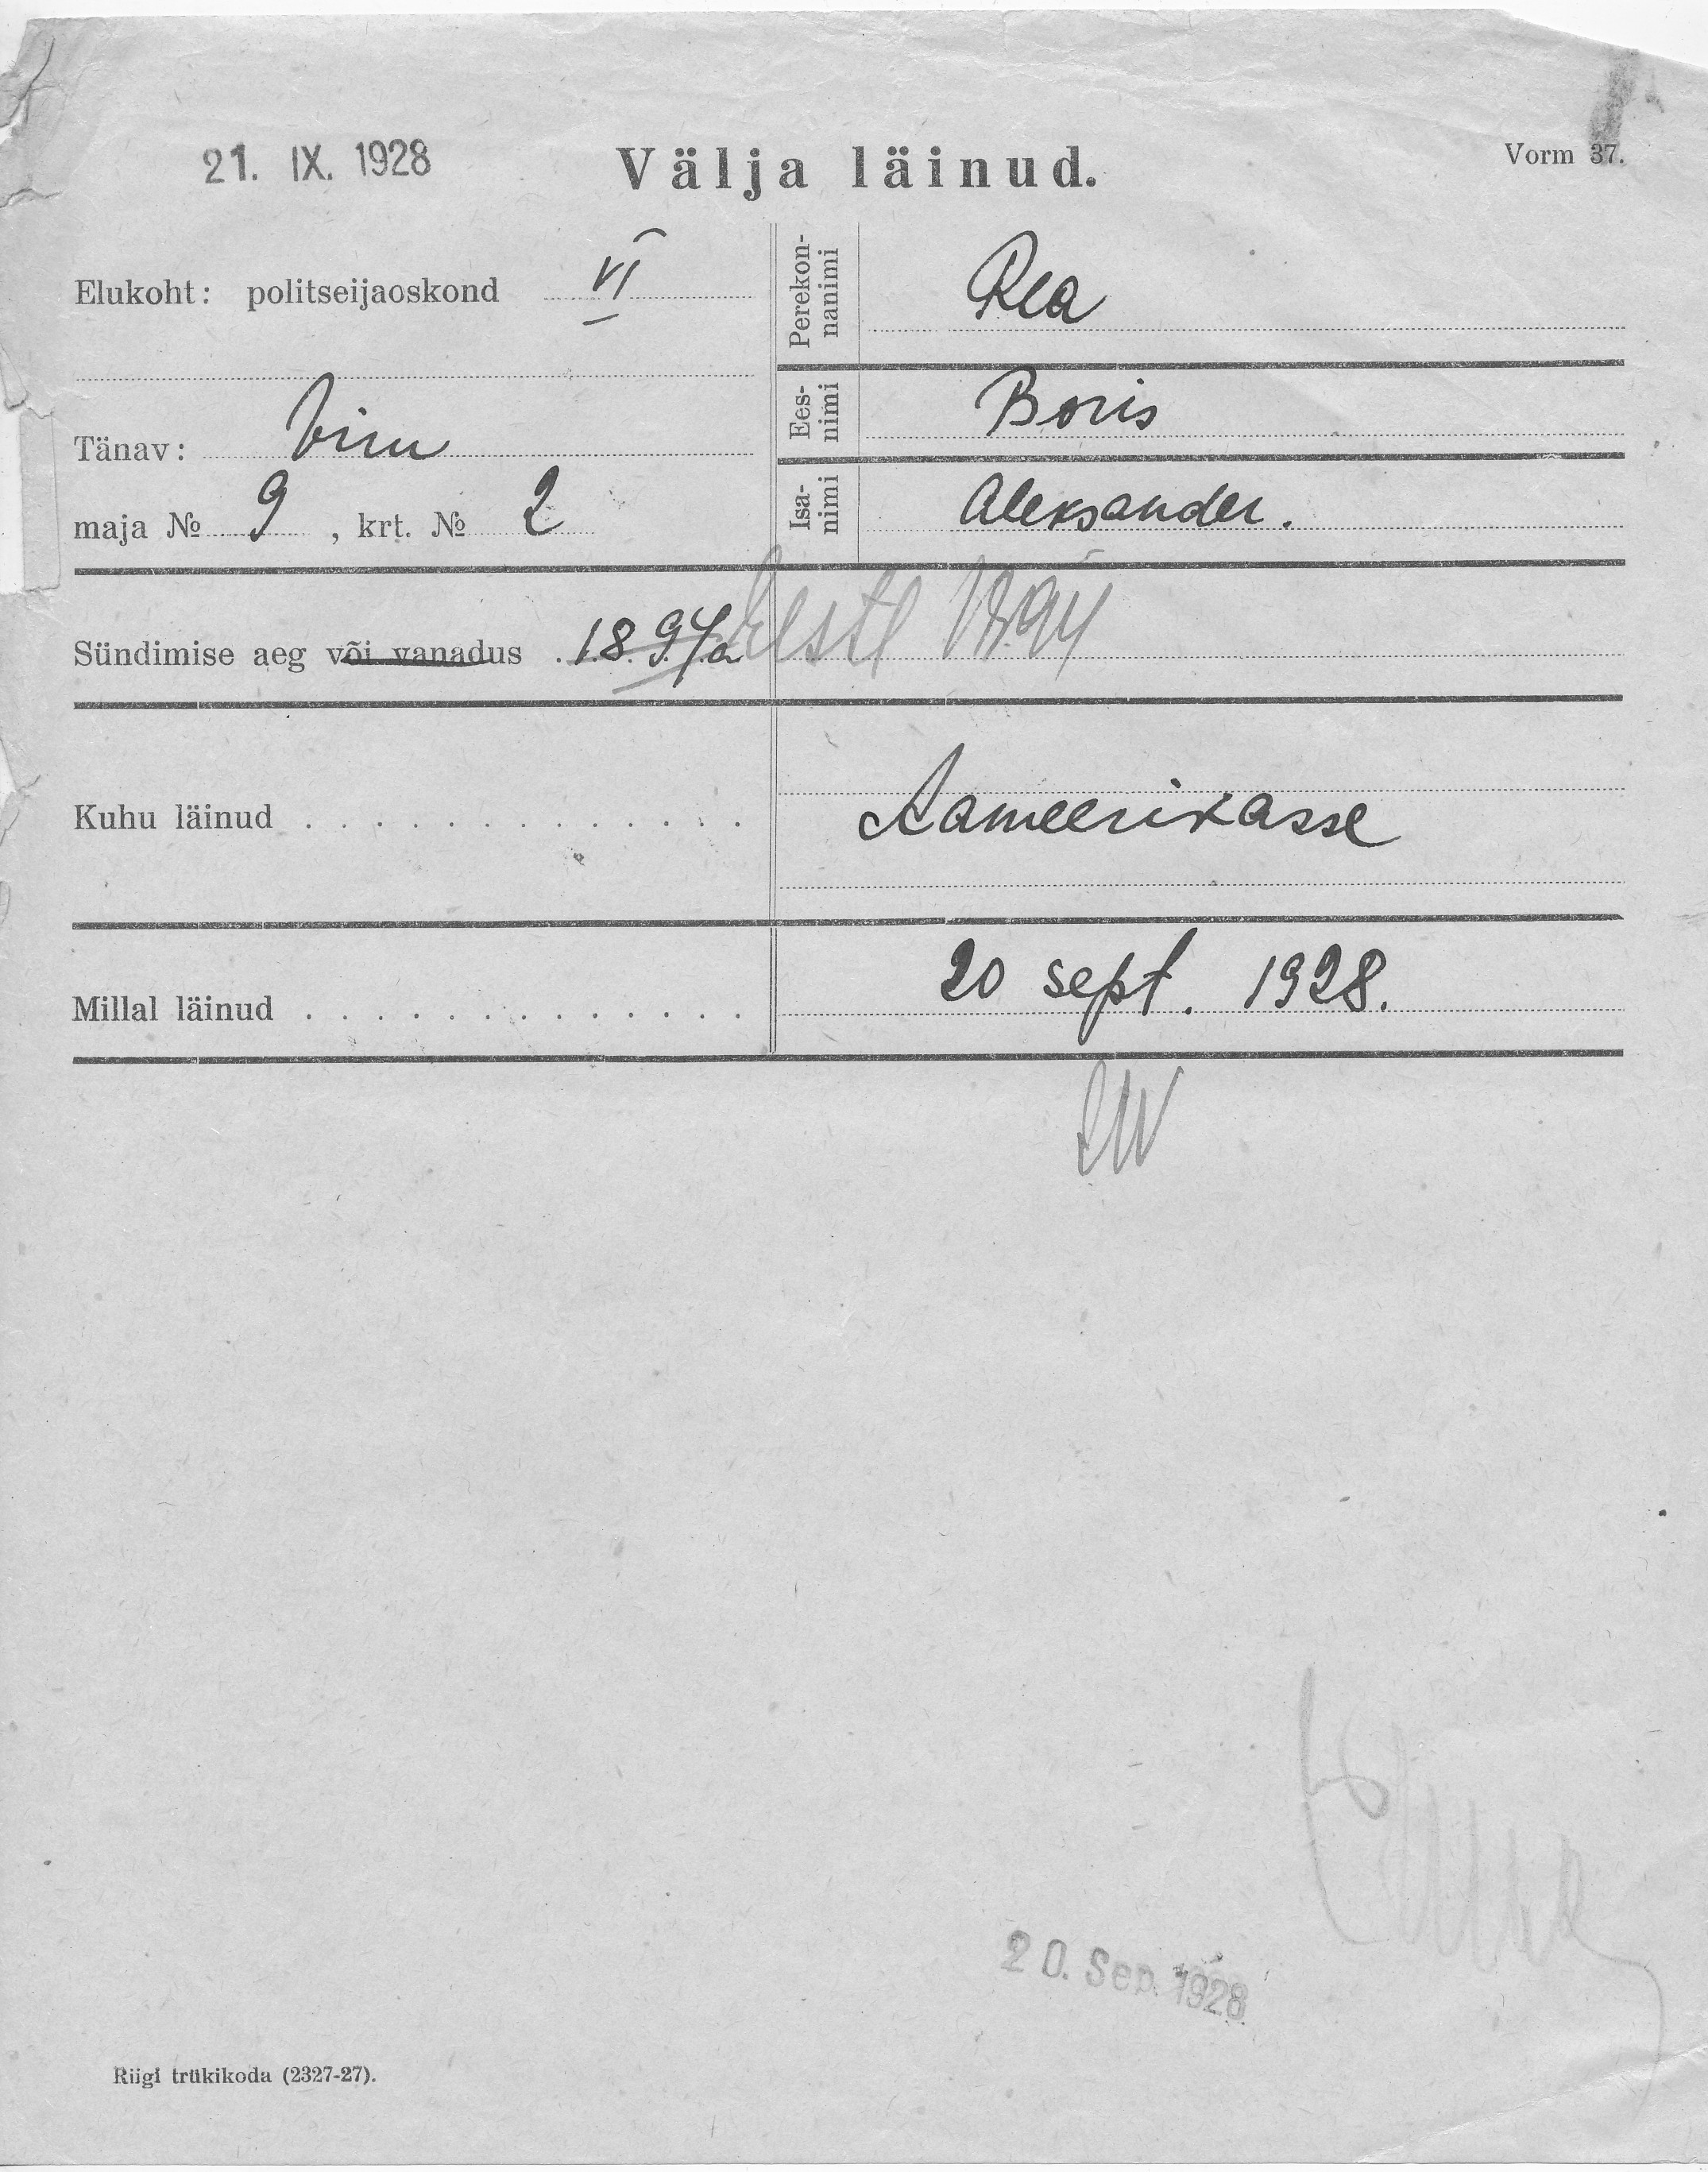 21. IX. 1928
Välja läinud.
Vorm 37.
Elukoht: politseijaoskond VI
Tänav: Viru
maja № 9, krt. № 2
Perekon-
nanimi
Rea
Ees-
nimi
Boris
Isa-
nimi
Aleksander.
Sündimise aeg või vanadus 1894 a
Eestl 1894
Kuhu läinud . . . . . . . . . . . . .
Aameerikasse
Millal läinud . . . . . . . . . . . . .
20 sept. 1928.
20. Sep. 1928
Riigi trükikoda (2327-27).